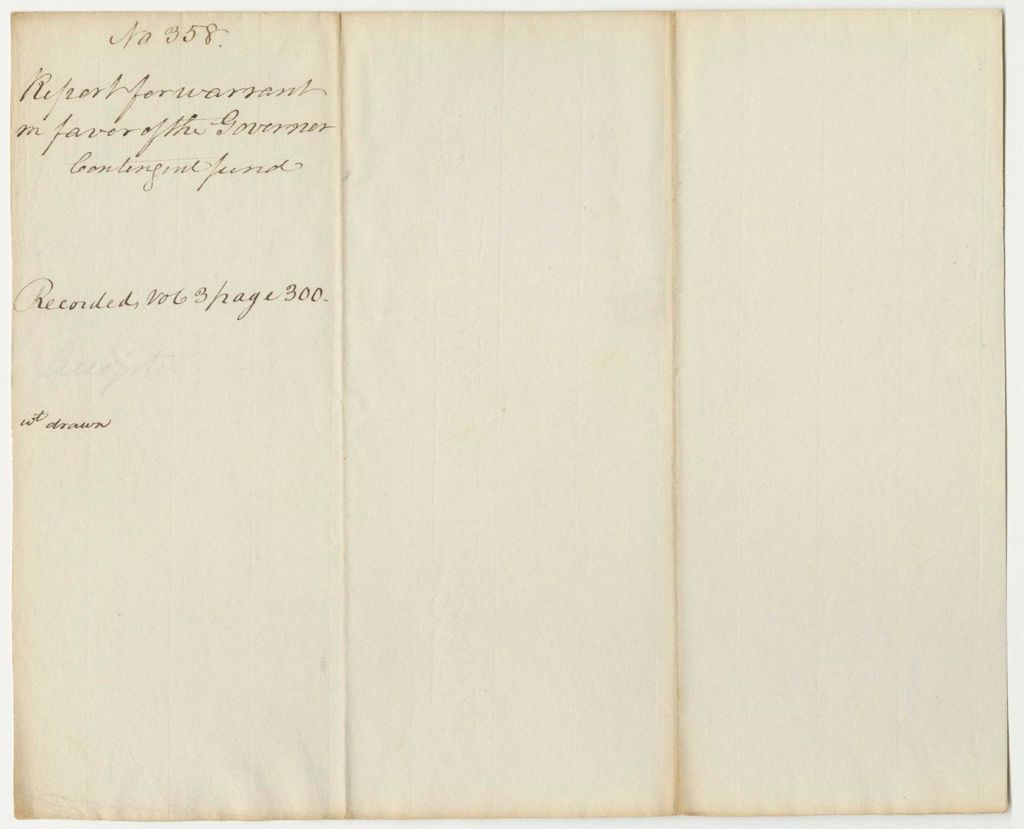 No 358.
Report for warrant
in favor of the Governor
Contingent fund
Recorded, Vol 3 page 300-
wt drawn